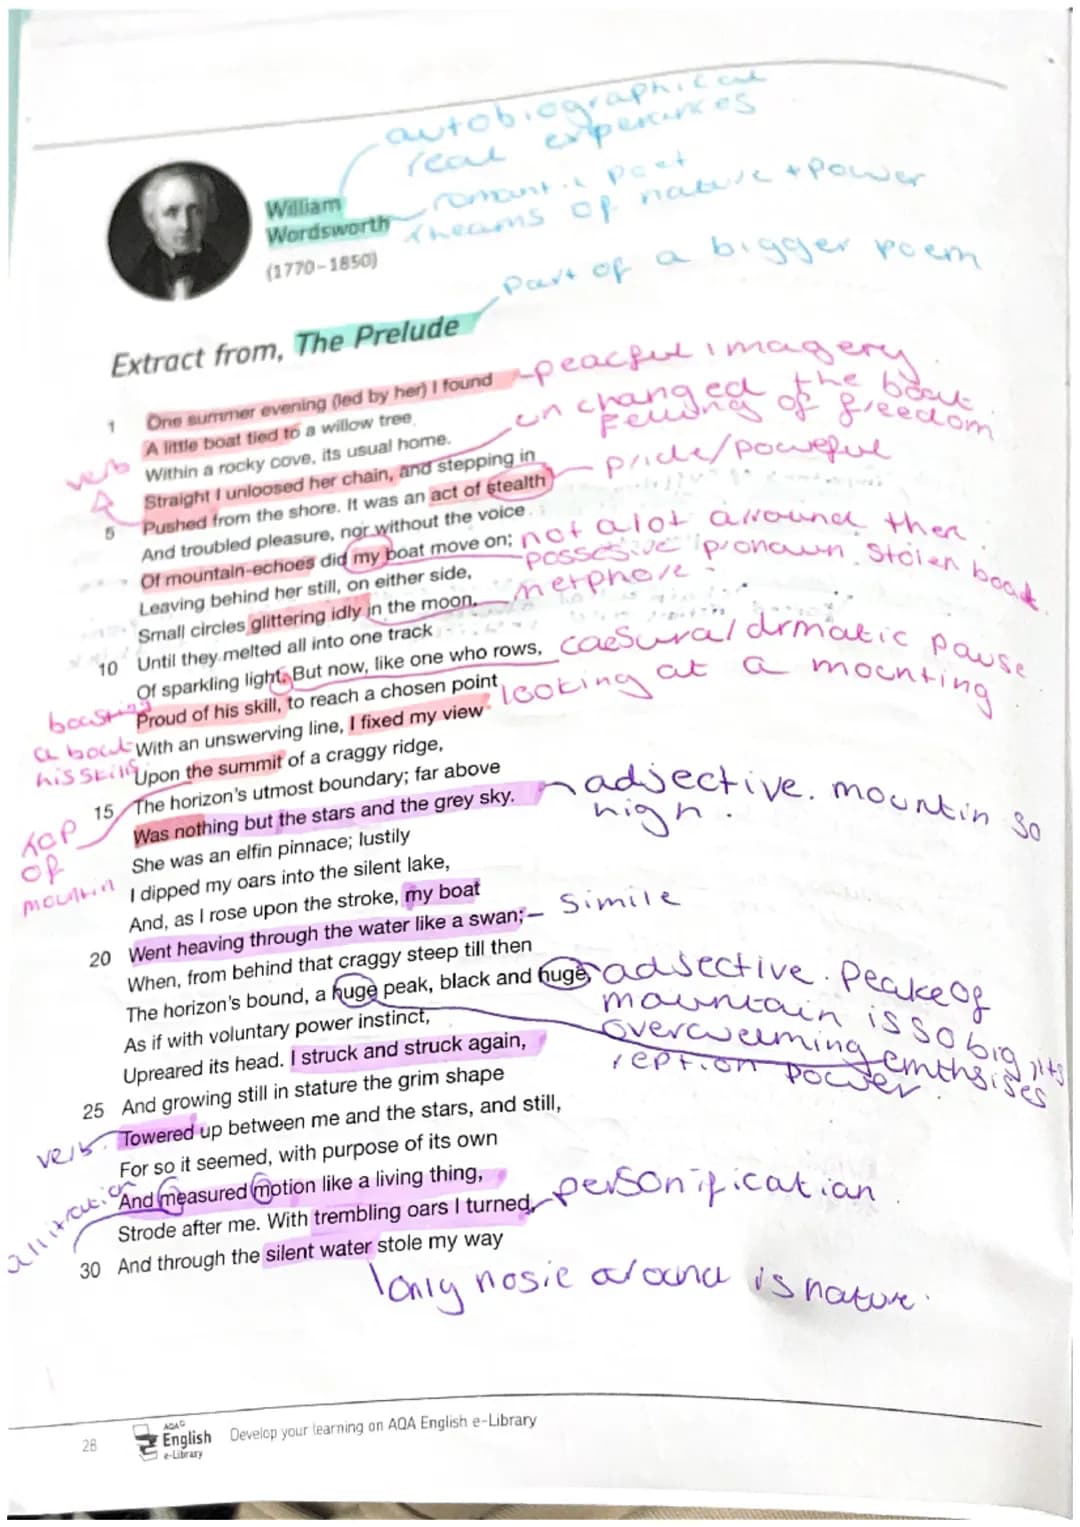 autobiographical
real experinces
romantic poet
theams of nature + power
William
Wordsworth
(1770–1850)
Part of a bigger poem
Extract from, The Prelude
1 One summer evening (led by her) I found
-peacful imagery.
A little boat tied to a willow tree
un changed the boat.
Within a rocky cove, its usual home.
feeling of freedom
verb
Straight I unloosed her chain, and stepping in
pride/powerful
5 Pushed from the shore. It was an act of stealth
And troubled pleasure, nor without the voice
Of mountain-echoes did my boat move on;
not alot arround then.
possesive pronoun. Stolen boat.
Leaving behind her still, on either side,
metphore.
Small circles glittering idly in the moon,
10 Until they melted all into one track
Of sparkling light. But now, like one who rows,
caesural drmatic pause
boasting
Proud of his skill, to reach a chosen point
looking at a mounting
a bout
With an unswerving line, I fixed my view
his skills
Upon the summit of a craggy ridge,
15 The horizon's utmost boundary; far above
adjective. mountin so
high.
top
of
mountin
Was nothing but the stars and the grey sky.
She was an elfin pinnace; lustily
I dipped my oars into the silent lake,
And, as I rose upon the stroke, my boat
20 Went heaving through the water like a swan;
– Simile
When, from behind that craggy steep till then
The horizon's bound, a huge peak, black and huge,
adjective. Peake of
mountain is so big, its
overweeming emthsises
reption power.
As if with voluntary power instinct,
Upreared its head. I struck and struck again,
25 And growing still in stature the grim shape
verb.
Towered up between me and the stars, and still,
For so it seemed, with purpose of its own
allitration
And measured motion like a living thing,
personification
Strode after me. With trembling oars I turned,
30 And through the silent water stole my way
only nosie around is nature.
28
AQA
English
e-Library
Develop your learning on AQA English e-Library